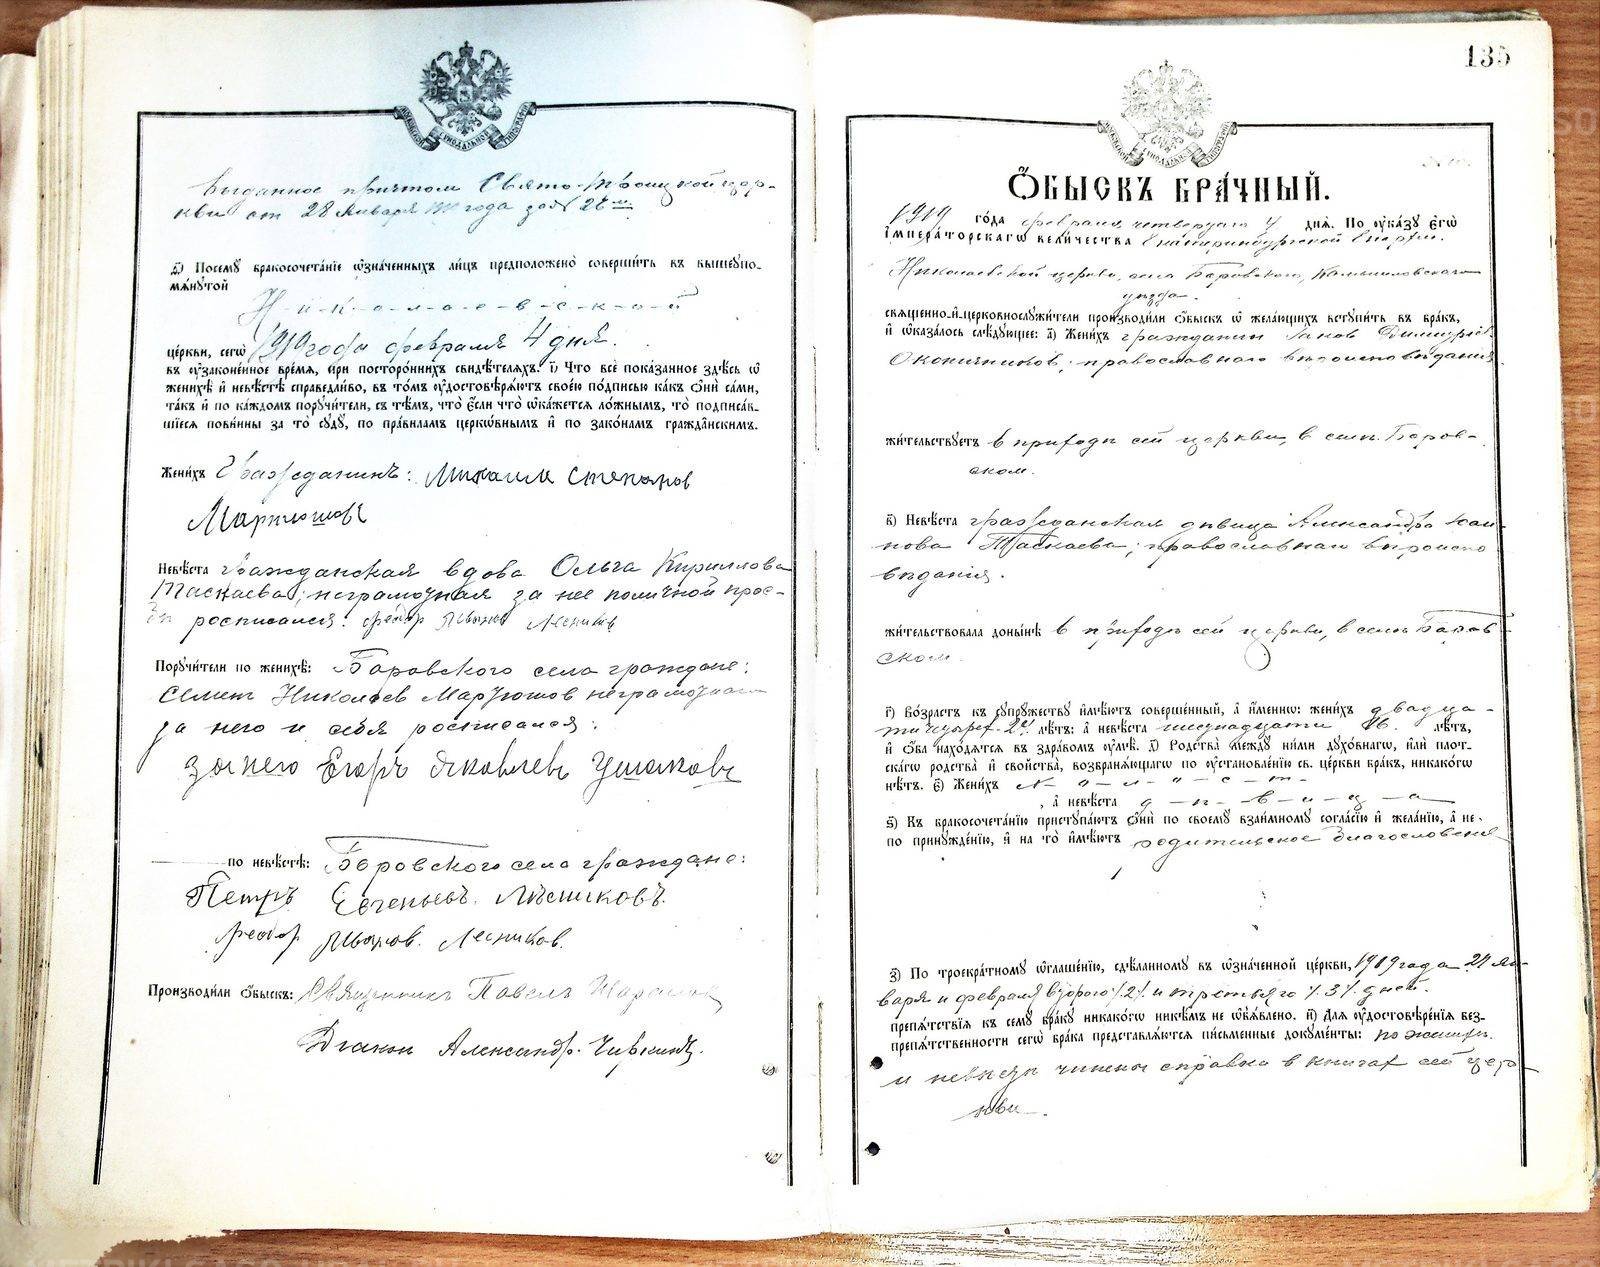 Выданное причтом Свято-Троицкой цер-
кви от 28 Января 1919 года за №
МОСКОВСКОЙ СѴНОДАЛЬНОЙ ТИПОГРАФІИ
Посемꙋ бракосочетаніе ѡзначенныхъ лицъ предположено совершить въ вышеупо-
мянутой
Н-и-к-о-л-а-е-в-с-к-о-й
церкви, сегѡ 1919 года февраля 4 дня.
въ ᲂузаконенное время, при постороннихъ свидѣтеляхъ. і) Что всё показанное здѣсь ѡ
женихѣ и невѣстѣ справедливо, въ томъ ᲂудостовѣряютъ своею подписью какъ ѻни сами,
такъ и по каждомъ поручители, съ тѣмъ, что если что ѡкажется ложнымъ, то подписав-
шіеся повинны за то суду, по правиламъ церковнымъ и по законамъ гражданскимъ.
Женихъ Гражданинъ: Михаилъ Степанов
Мартюшовъ
Невѣста гражданская вдова Ольга Кириллова
Таскаева; неграмотная за нее по личной прос-
росписался: Федор Иванов Лесников
Поручители по женихѣ: Боровского села граждане:
Семен Николаев Мартюшов неграмотный
за него и себя росписался:
за него Егоръ Яковлевъ Ушаковъ
по невѣстѣ: Боровского села граждане:
Петръ Евгеньевъ Лѣсниковъ.
Федор Иванов. Лесников.
Производили ѻбыскъ: Священникъ Павелъ
Диакон Александр
135
МОСКОВСКОЙ СѴНОДАЛЬНОЙ ТИПОГРАФІИ
ѺБЫСКЪ БРАЧНЫЙ.
1919 года февраля четвертаго 4 дня. По ᲂуказу Егѡ
Императорскагѡ величества Екатеринбургской Епархіи.
Николаевской церкви, села Боровского, Камышловского
уезда.
священно-и-церковнослужители производили ѻбыскъ ѡ желающихъ вступить въ бракъ,
и ѡказалось слѣдующее: а) Женихъ гражданин Іаков Димитріев
Оконичников; православного вероисповедания
жительствуетъ в приходе сей церкви, в селе Боров-
ском.
в) Невѣста гражданская девица Александра Іоан-
нова Таскаева; православнаго вероиспо
ведания.
жительствовала донынѣ в приходе сей церкви, в селе Боров-
ском.
г) Возрастъ къ супружеству имѣютъ совершенный, а именно: женихъ двадца-
ти четырех 24 лѣтъ: а невѣста шестнадцати 16. лѣтъ,
и ѻба находятся въ здравомъ ᲂумѣ. д) Родства между ними духовнагѡ, или плот-
скагѡ родства и свойства, возбраняющагѡ по ᲂустановленію св. церкви бракъ, никакогѡ
нѣтъ. е) Женихъ х-о-л-о-с-т-
, а невѣста д-е-в-и-ц-а
ѕ) Къ бракосочетанію приступаютъ ѻни по своему взаимному согласію и желанію, а не
по принужденію, и на то имѣютъ родительское благословение
з) По троекратному ѡглашенію, сдѣланному въ ѡзначенной церкви, 1919 года 27 Ян-
варя и февраля второго /2/ и третьяго /3/ дней.
препятствія къ сему браку никакогѡ никѣмъ не ѡбъявлено. и) Для ᲂудостовѣренія без-
препятственности сегѡ брака представляются письменные документы: по женихе
и невесте чинена справка в книгах сей цер-
кви.